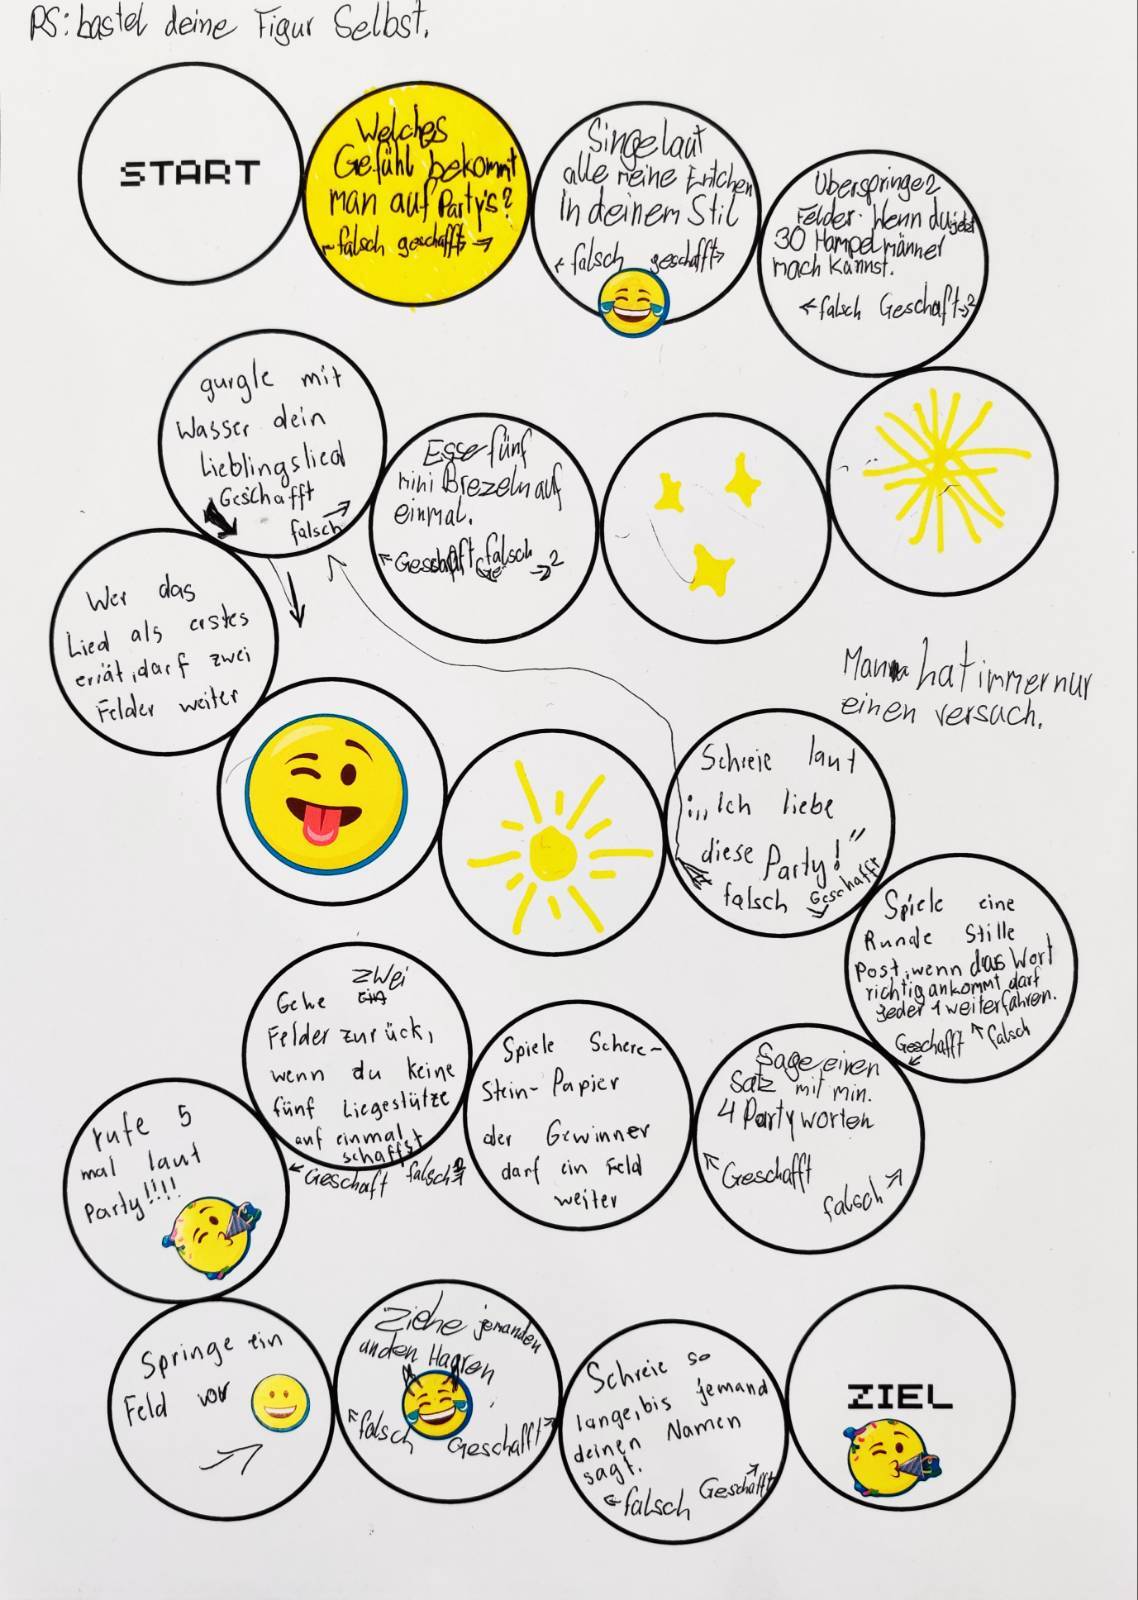 PS: bastel deine Figur Selbst.
START
Welches
Gefühl bekommt
man auf Party's?
← falsch geschafft →
Singe laut
alle meine Entchen
In deinem Stil
← falsch geschafft→
Überspringe 2
Felder. Wenn du jetzt
30 Hampelmänner
mach kannst.
← falsch Geschaft→2
gurgle mit
Wasser dein
Lieblingslied
Geschafft
falsch
Esse fünf
mini Brezeln auf
einmal.
←Geschaft falsch →2
Wer das
Lied als erstes
errät, darf zwei
Felder weiter
Man hat immer nur
einen versuch.
Schreie laut
:,,Ich liebe
diese Party!"
falsch Geschafft
Spiele eine
Runde Stille
Post, wenn das Wort
richtig ankommt darf
Jeder 1 weiterfahren.
Geschafft falsch
Sage einen
Satz mit min.
4 Partyworten
Geschafft
falsch
Spiele Schere-
Stein-Papier
der Gewinner
darf ein Feld
weiter
zwei
Gehe ein
Felder zurück,
wenn du keine
fünf Liegestütze
auf einmal
schaffst
← Geschaft falsch
rufe 5
mal laut
Party!!!!
Springe ein
Feld vor
Ziehe jemanden
an den Haaren
falsch
Geschafft
Schreie so
lange, bis jemand
deinen Namen
sagt.
←falsch Geschafft
ZIEL